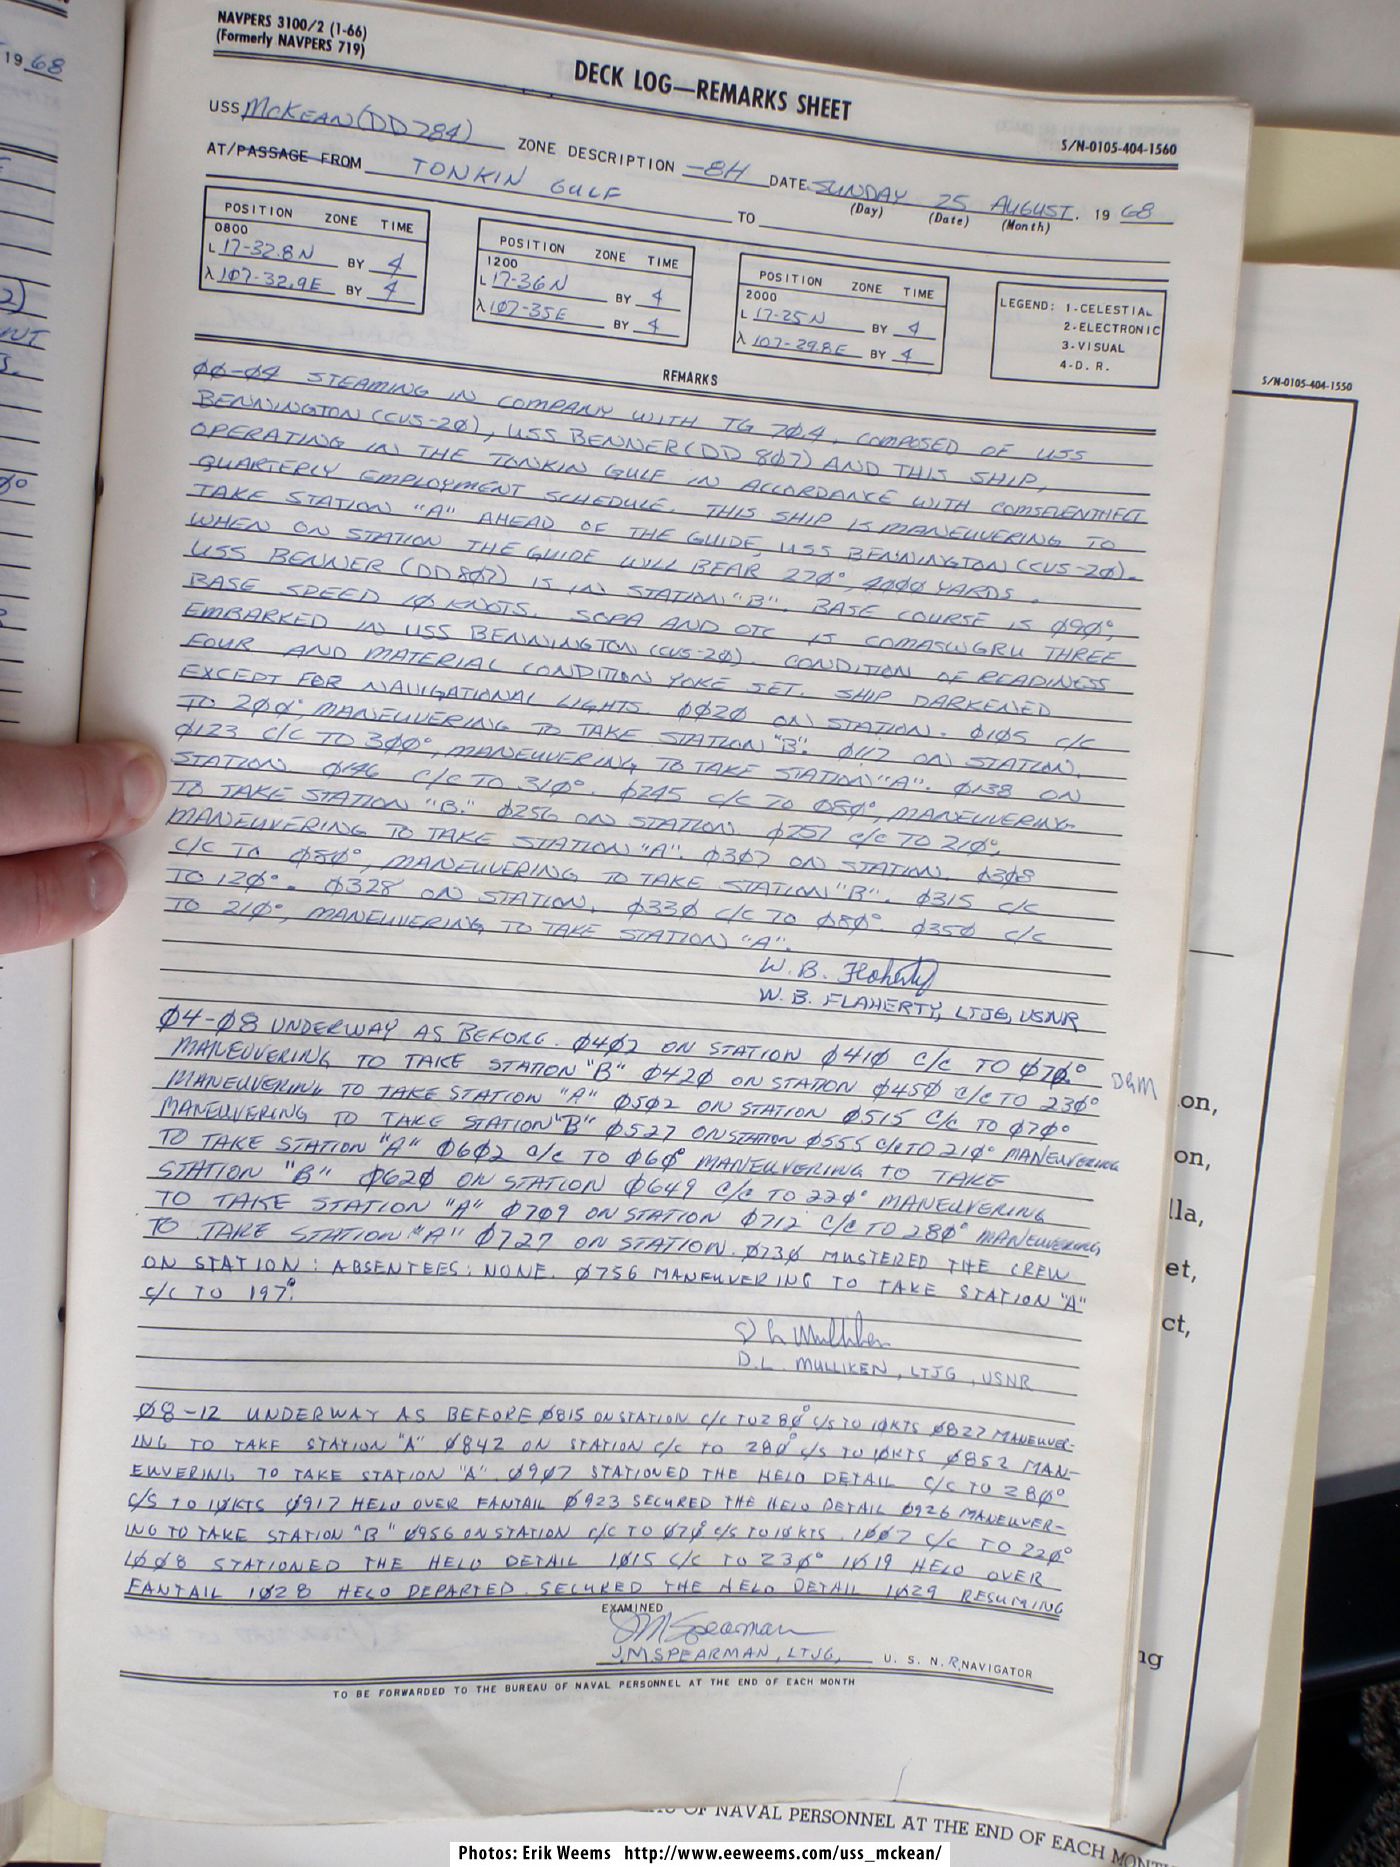 NAVPERS 3100/2 (1-66)
(Formerly NAVPERS 719)
DECK LOG—REMARKS SHEET
S/N-0105-404-1560
USS McKEAN (DD 784) ZONE DESCRIPTION -8H DATE SUNDAY 25 AUGUST. 19 68
(Day) (Date) (Month)
AT/PASSAGE FROM TONKIN GULF TO
POSITION ZONE TIME
0800
L 17-32.8N BY 4
λ 107-32.9E BY 4
POSITION ZONE TIME
1200
L 17-36N BY 4
λ 107-35E BY 4
POSITION ZONE TIME
2000
L 17-25N BY 4
λ 107-29.8E BY 4
LEGEND: 1-CELESTIAL
2-ELECTRONIC
3-VISUAL
4-D. R.
REMARKS
00-04 STEAMING IN COMPANY WITH TG 70.4, COMPOSED OF USS
BENNINGTON (CVS-20), USS BENNER (DD 807) AND THIS SHIP,
OPERATING IN THE TONKIN GULF IN ACCORDANCE WITH COMSEVENTHFLT
QUARTERLY EMPLOYMENT SCHEDULE. THIS SHIP IS MANEUVERING TO
TAKE STATION "A" AHEAD OF THE GUIDE, USS BENNINGTON (CVS-20).
WHEN ON STATION THE GUIDE WILL BEAR 270°, 4000 YARDS.
USS BENNER (DD807) IS IN STATION "B". BASE COURSE IS 090°,
BASE SPEED 10 KNOTS. SOPA AND OTC IS COMASWGRU THREE
EMBARKED IN USS BENNINGTON (CVS-20). CONDITION OF READINESS
FOUR AND MATERIAL CONDITION YOKE SET. SHIP DARKENED
EXCEPT FOR NAVIGATIONAL LIGHTS. 0020 ON STATION. 0105 C/C
TO 200°, MANEUVERING TO TAKE STATION "B". 0117 ON STATION.
0123 C/C TO 300°, MANEUVERING TO TAKE STATION "A". 0138 ON
STATION 0146 C/C TO 310°. 0245 C/C TO 080°, MANEUVERING
TO TAKE STATION "B." 0256 ON STATION 0257 C/C TO 210°,
MANEUVERING TO TAKE STATION "A". 0307 ON STATION. 0308
C/C TO 080°, MANEUVERING TO TAKE STATION "B". 0315 C/C
TO 120°. 0328 ON STATION. 0330 C/C TO 080°. 0350 C/C
TO 210°, MANEUVERING TO TAKE STATION "A".
W. B. Flaherty
W. B. FLAHERTY, LTJG, USNR
04-08 UNDERWAY AS BEFORE. 0402 ON STATION 0410 C/C TO 070°
MANEUVERING TO TAKE STATION "B" 0420 ON STATION 0450 C/C TO 230°
MANEUVERING TO TAKE STATION "A" 0502 ON STATION 0515 C/C TO 070°
MANEUVERING TO TAKE STATION "B" 0527 ON STATION 0555 C/C TO 210° MANEUVERING
TO TAKE STATION "A" 0602 C/C TO 060° MANEUVERING TO TAKE
STATION "B" 0620 ON STATION 0649 C/C TO 220° MANEUVERING
TO TAKE STATION "A" 0709 ON STATION 0712 C/C TO 280° MANEUVERING
TO TAKE STATION "A" 0727 ON STATION. 0730 MUSTERED THE CREW
ON STATION: ABSENTEES: NONE. 0756 MANEUVERING TO TAKE STATION "A"
C/C TO 197°.
D L Mulliken
D.L. MULLIKEN, LTJG, USNR
08-12 UNDERWAY AS BEFORE 0815 ON STATION C/C TO 280° C/S TO 10KTS 0827 MANEUVER-
ING TO TAKE STATION "A" 0842 ON STATION C/C TO 280° C/S TO 10KTS 0852 MAN-
EUVERING TO TAKE STATION "A". 0907 STATIONED THE HELO DETAIL C/C TO 280°
C/S TO 10KTS 0917 HELO OVER FANTAIL 0923 SECURED THE HELO DETAIL 0926 MANEUVER-
ING TO TAKE STATION "B" 0956 ON STATION C/C TO 070° C/S TO 10KTS. 1007 C/C TO 220°
1008 STATIONED THE HELO DETAIL 1015 C/C TO 230° 1019 HELO OVER
FANTAIL 1028 HELO DEPARTED. SECURED THE HELO DETAIL 1029 RESUMING
EXAMINED
JM Spearman
J.M SPEARMAN, LTJG, U. S. N. R. NAVIGATOR
TO BE FORWARDED TO THE BUREAU OF NAVAL PERSONNEL AT THE END OF EACH MONTH
19 68
S/N-0105-404-1550
on,
on,
lla,
et,
ct,
ng
OF NAVAL PERSONNEL AT THE END OF EACH MONTH
Photos: Erik Weems http://www.eeweems.com/uss_mckean/